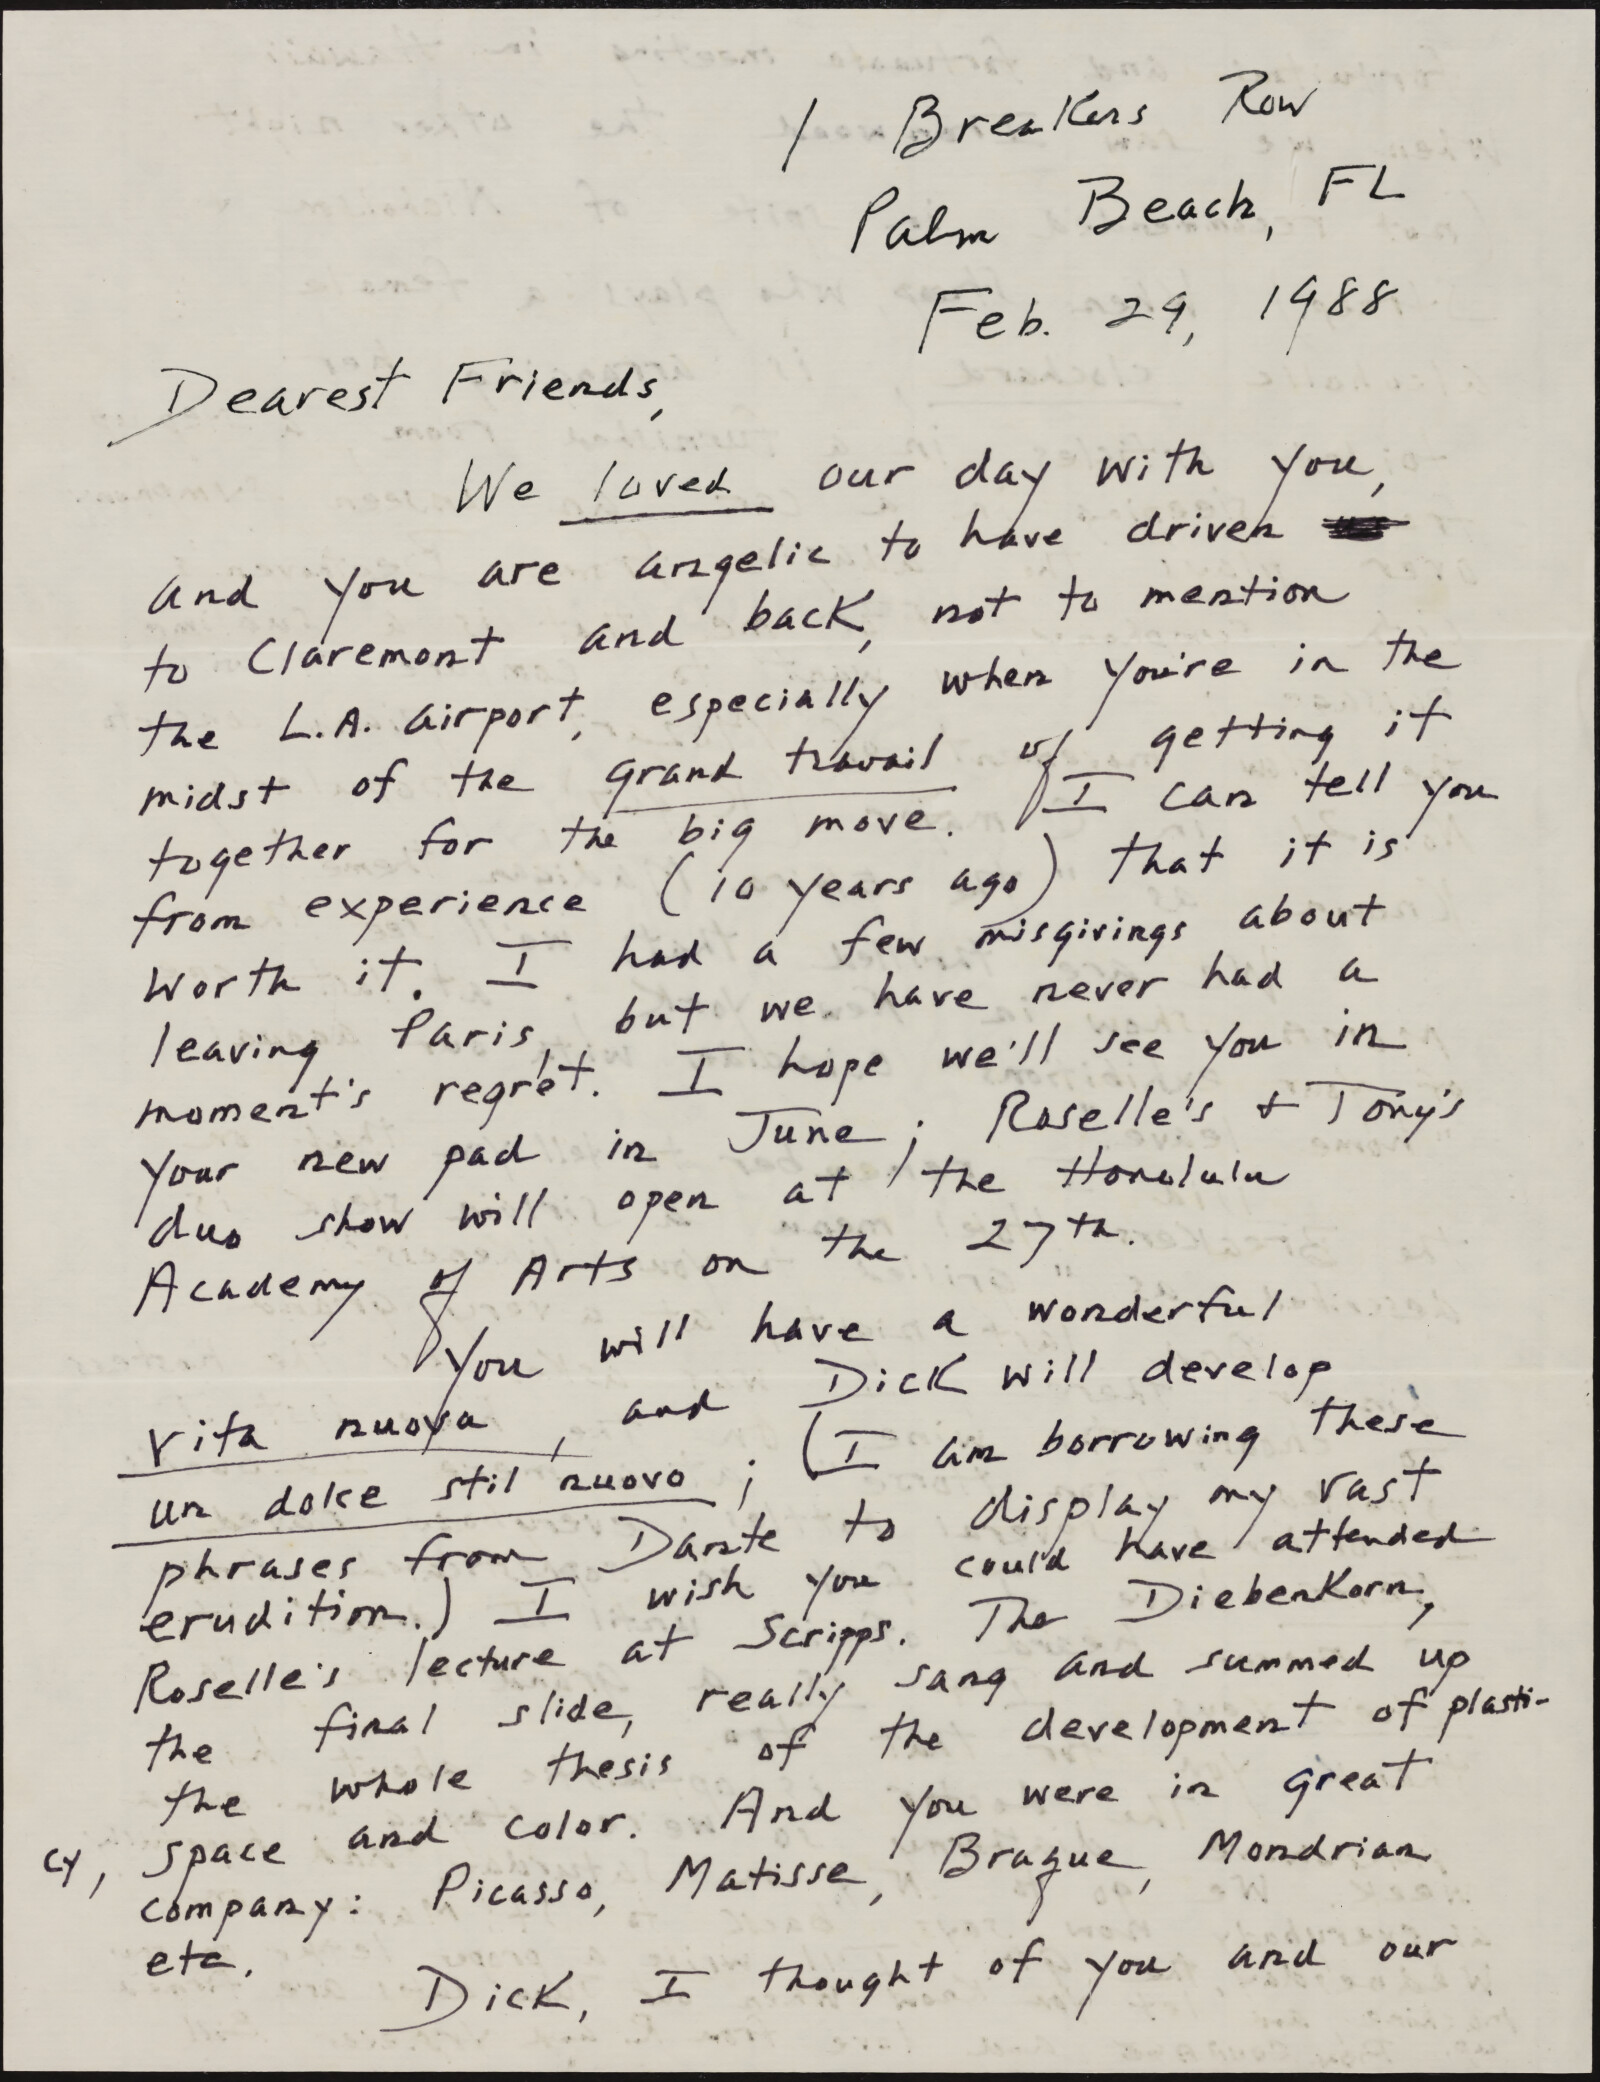 1 Breakers Row
Palm Beach, FL
Feb. 29, 1988
Dearest Friends,
We loved our day with you,
and you are angelic to have driven
to Claremont and back, not to mention
the L.A. airport, especially when you're in the
midst of the grand travail of getting it
together for the big move. I can tell you
from experience (10 years ago) that it is
worth it. I had a few misgivings about
leaving Paris, but we have never had a
moment's regret. I hope we'll see you in
your new pad in June; Roselle's & Tony's
duo show will open at the Honolulu
Academy of Arts on the 27th.
You will have a wonderful
vita nuova, and Dick will develop
un dolce stil nuovo; (I am borrowing these
phrases from Dante to display my vast
erudition.) I wish you could have attended
Roselle's lecture at Scripps. The Diebenkorn,
the final slide, really sang and summed up
the whole thesis of the development of plasti-
cy, space and color. And you were in great
company: Picasso, Matisse, Braque, Mondrian
etc.
Dick, I thought of you and our